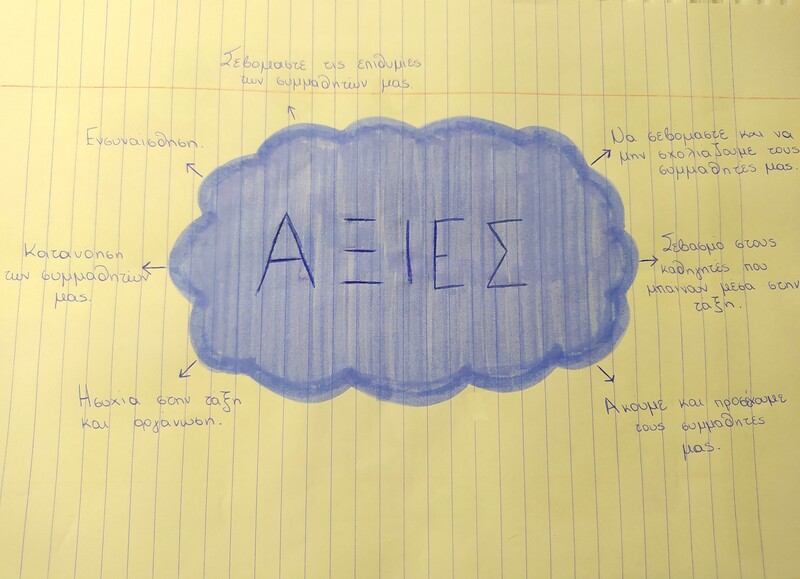 Σεβομαστε τις επιθυμιες
των συμμαθητών μας.
Ενσυναισθηση.
Να σεβομαστε και να
μην σχολιαζουμε τους
συμμαθητες μας.
ΑΞΙΕΣ
Κατανοηση
των συμμαθητών
μας.
Σεβασμο στους
καθηγητές που
μπαινουν μεσα στην
ταξη.
Ησυχια στην ταξη
και οργάνωση.
Ακουμε και προσέχουμε
τους συμμαθητές
μας.